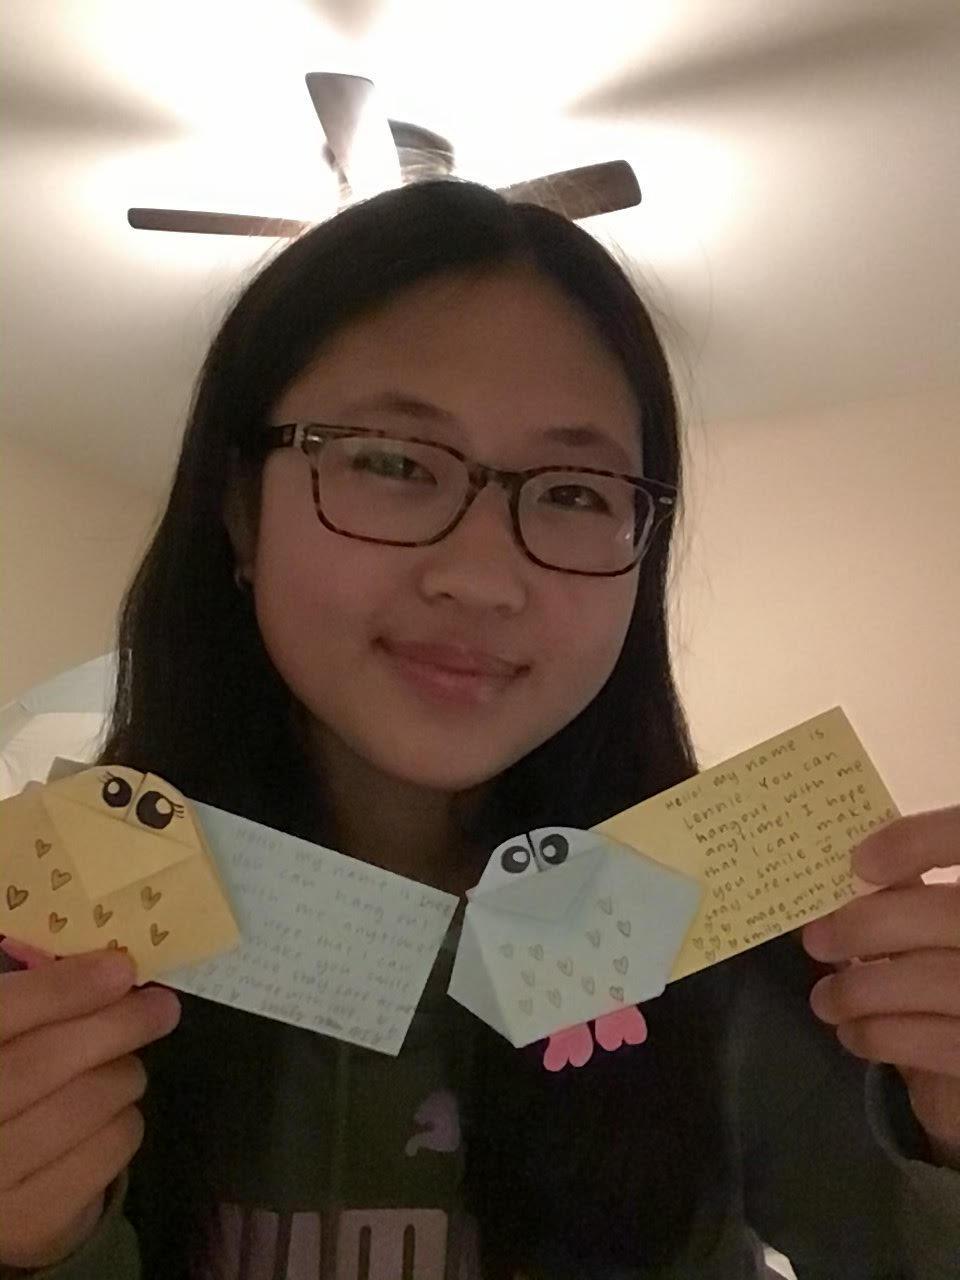 Hello! my name is
you can hang out
with me anytime!
I hope that I can
make you smile
please stay safe
made with love
Emily from
Hello! my name is
Lennie. You can
hangout with me
any time! I hope
that I can make
you smile Please
stay safe + healthy
made with Love
Emily from MI